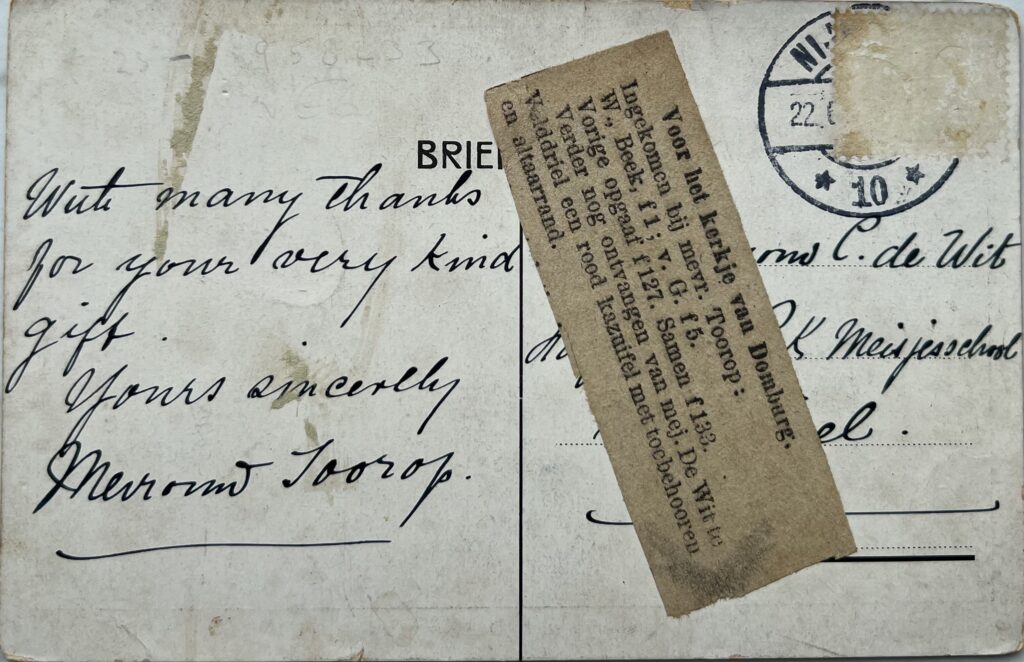 BRIE
With many thanks
for your very kind
gift.
Yours sincerely
Mevrouw Toorop.
Voor het kerkje van Domburg.
Ingekomen bij mevr. Toorop:
W., Beek, f 1; v. G. f 5.
Vorige opgaaf f 127. Samen f 133.
Verder nog ontvangen van mej. De Wit te
Velddriel een rood kazuifel met toebehooren
en altaarrand.
22.
10
C. de Wit
K Meisjesschool
el.